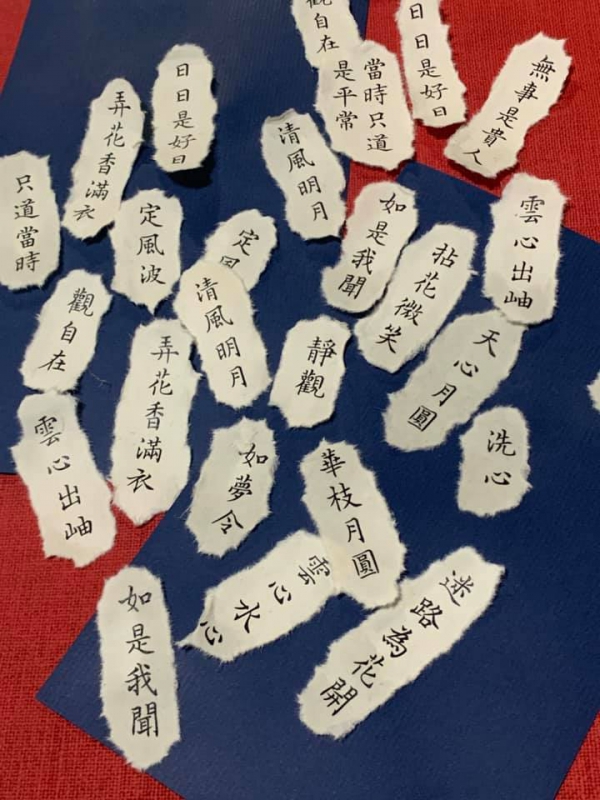 觀自在
日日是好日
當時只道
是平常
無事是貴人
日日是好日
弄花香滿衣
清風明月
只道當時
定風波
如是我聞
雲心出岫
拈花微笑
定風
清風明月
觀自在
弄花香滿衣
靜觀
天心月圓
雲心出岫
如夢令
華枝月圓
洗心
雲心水心
迷路為花開
如是我聞